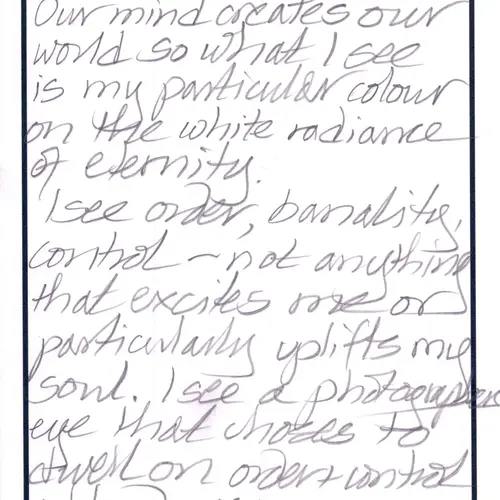 Our mind creates our
world so what I see
is my particular colour
on the white radiance
of eternity.
I see order, banality,
control – not anything
that excites me or
particularly uplifts my
soul. I see a photographers
eye that choses to
dwell on order + control